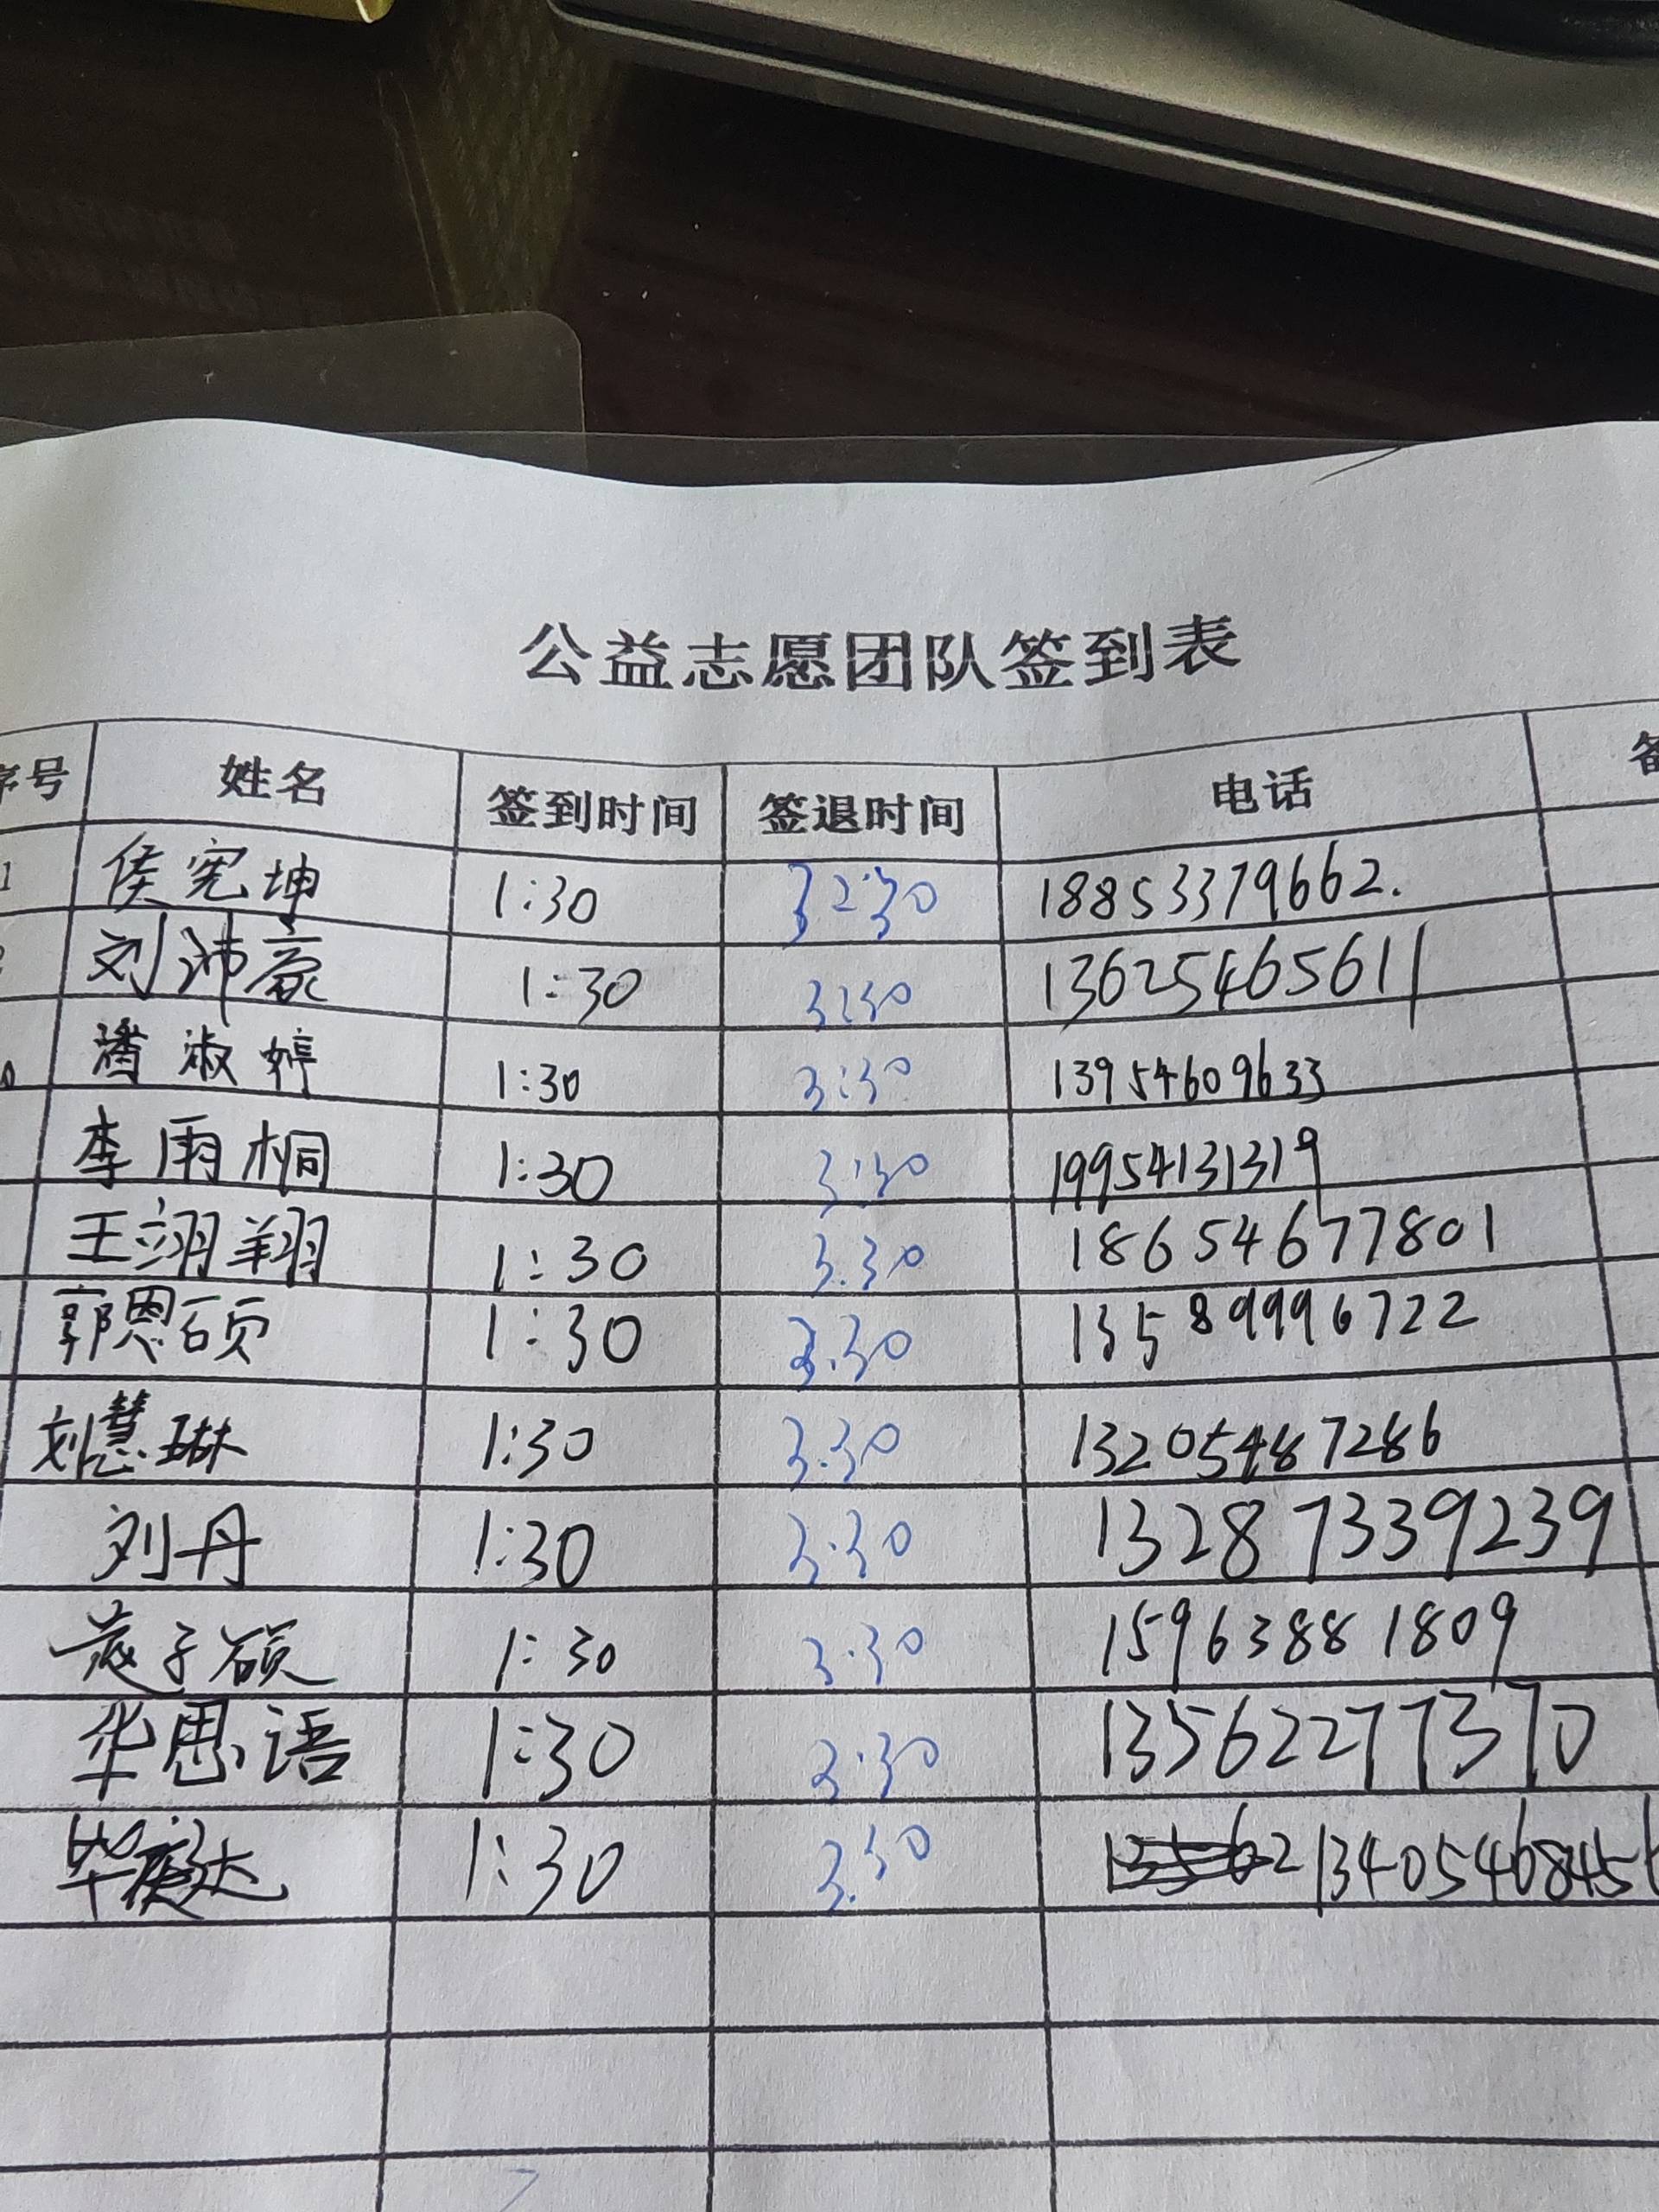 公益志愿团队签到表
序号 姓名 签到时间 签退时间 电话 备
1 侯宪坤 1:30 3 2:30 18853379662.
2 刘沛豪 1:30 3:30 13625465611
潘淑婷 1:30 3:30 13954609633
李雨桐 1:30 3:30 19954131319
王翊翔 1:30 3.30 18654677801
郭恩硕 1:30 3.30 13589996722
刘慧琳 1:30 3.30 13205487286
刘丹 1:30 3:30 13287339239
范子硕 1:30 3:30 15963881809
华思语 1:30 3:30 13562277370
毕 达 1:30 3.30 1340546845